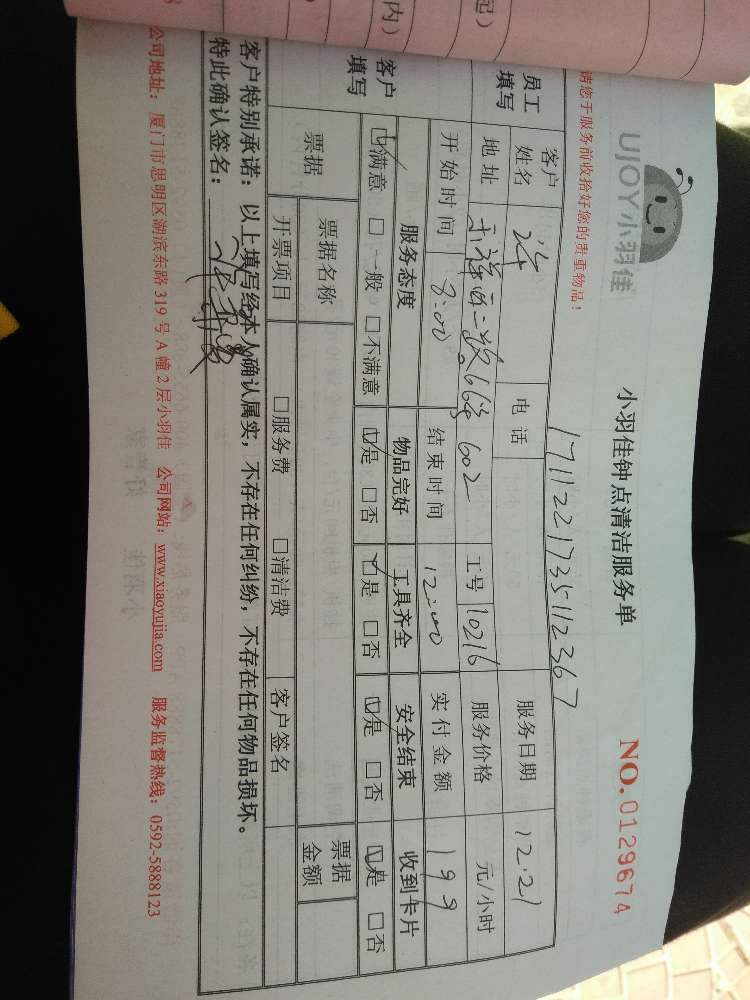 起）
内）
UJOY小羽佳
小羽佳钟点清洁服务单
NO. 0129674
请您于服务前收拾好您的贵重物品！
1711221735112367
员工填写
客户姓名
电话
服务日期 12.21
地址 663 602
工号 10216
服务价格 元/小时
开始时间 8:00
结束时间 12:00
实付金额 199
客户填写
服务态度 物品完好 工具齐全 安全结束 收到卡片
☑满意 □一般 □不满意 ☑是 □否 ☑是 □否 ☑是 □否 ☑是 □否
票据
票据名称
票据金额
开票项目 □服务费 □清洁费 客户签名
客户特别承诺：以上填写经本人确认属实，不存在任何纠纷，不存在任何物品损坏。
特此确认签名：
公司地址：厦门市思明区湖滨东路 319 号 A 幢 2 层小羽佳 公司网站：www.xiaoyujia.com 服务监督热线：0592-5888123